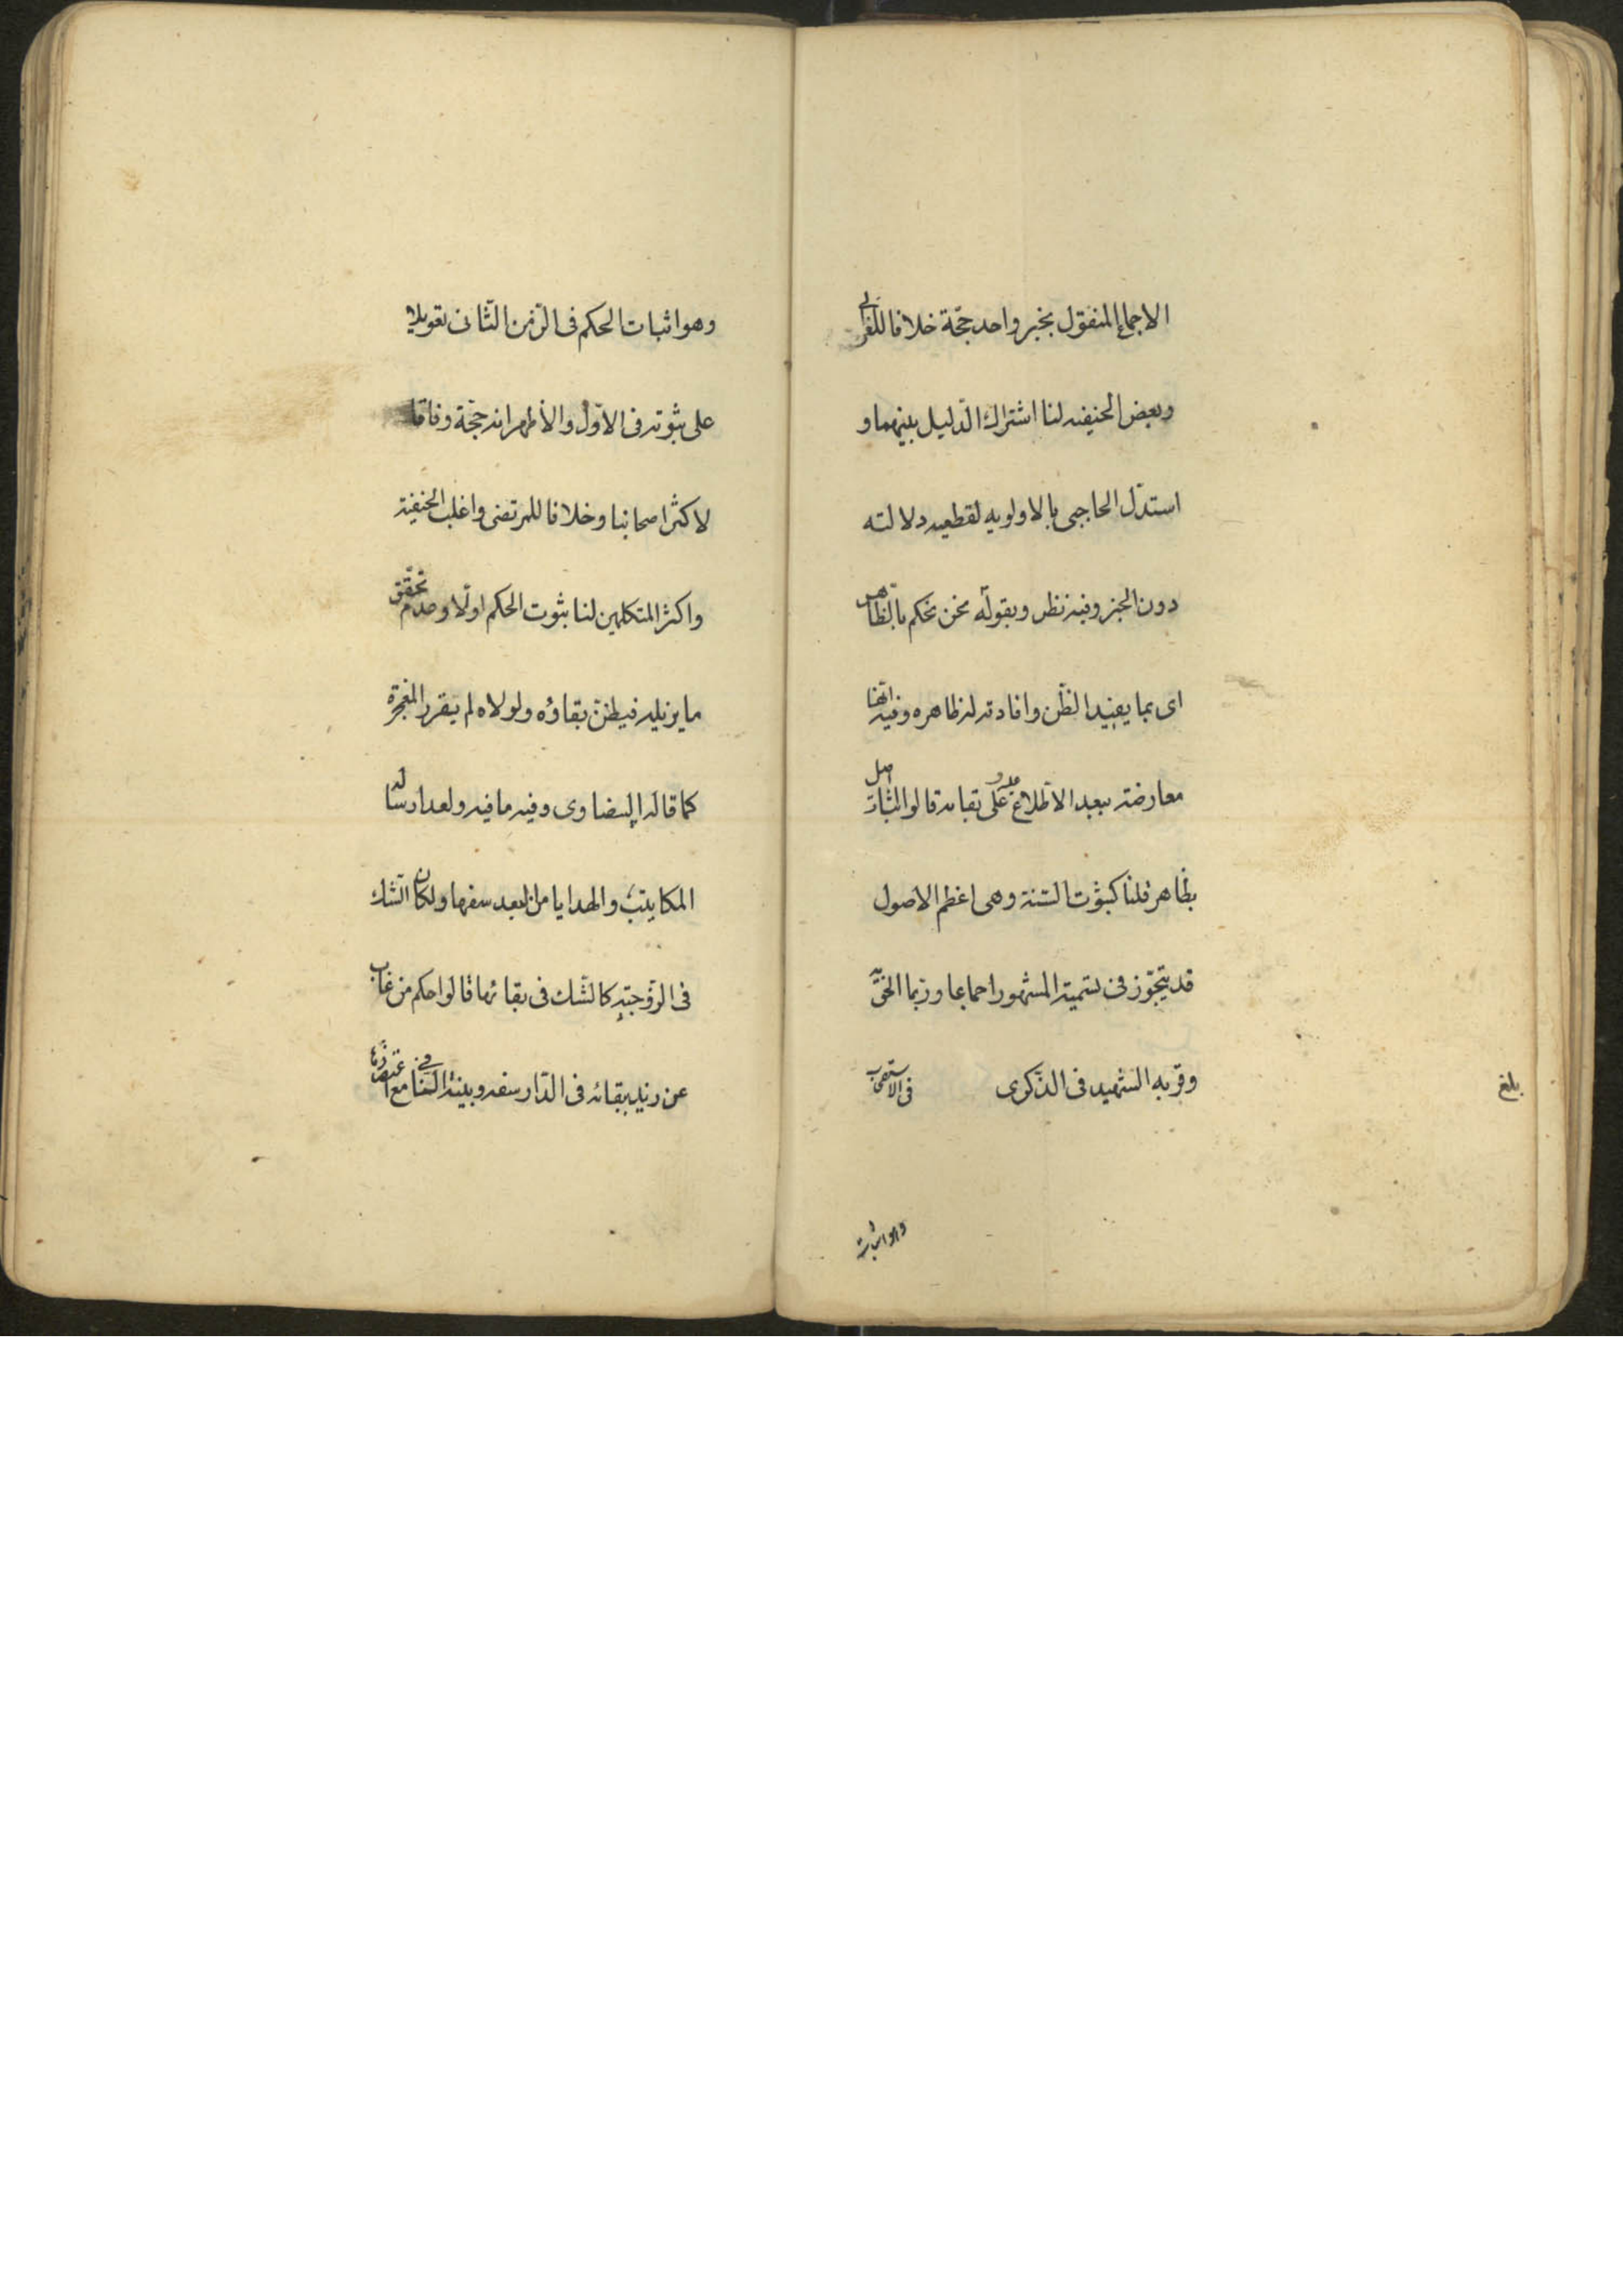 الاجماع المنقول بخبر واحد حجّة خلافا للغزالى
وبعض الحنيفه لنا اشتراك الدّليل بينهما و
استدّل الحاجبى بالاولويه لقطعيه دلالته
دون الخبر وفيه نظر وبقوله نحن نحكم بالظّاهر
اى بما يفيد الظّن وافادته له ظاهره وفيه
معارضته ببعد الاطّلاع عليه على نقله قالوا اثبات اصل
بظاهر قلنا كثبوت السّنة وهى اعظم الاصول
قد يتجّوز فى تسمية المشهور اجماعا وربما الحق به
وقربه الشهيد فى الذّكرى فى الاستصحاب
بلغ
وهو اثبات
وهو اثبات الحكم فى الزّمن الثّانى تعويلا
على ثبوته فى الاوّل والأظهر انه حجّة وفاقا
لاكثر اصحابنا وخلافا للمرتضى واغلب الحنفية
واكثر المتكلمين لنا ثبوت الحكم اولا وعدم تحقّق
ما يزيله فيظنّ بقاؤه ولولاه لم يتقرر المعجزة
كما قاله البيضاوى وفيه ما فيه ولعد ارسال
المكاتيب والهدايا من البعد سفها ولكان الشك
فى الزوجيّه كالشّك فى بقائها قالوا حكم من غاب
عن زيد ببقائه فى الدّار سفه وبينة النفى مع